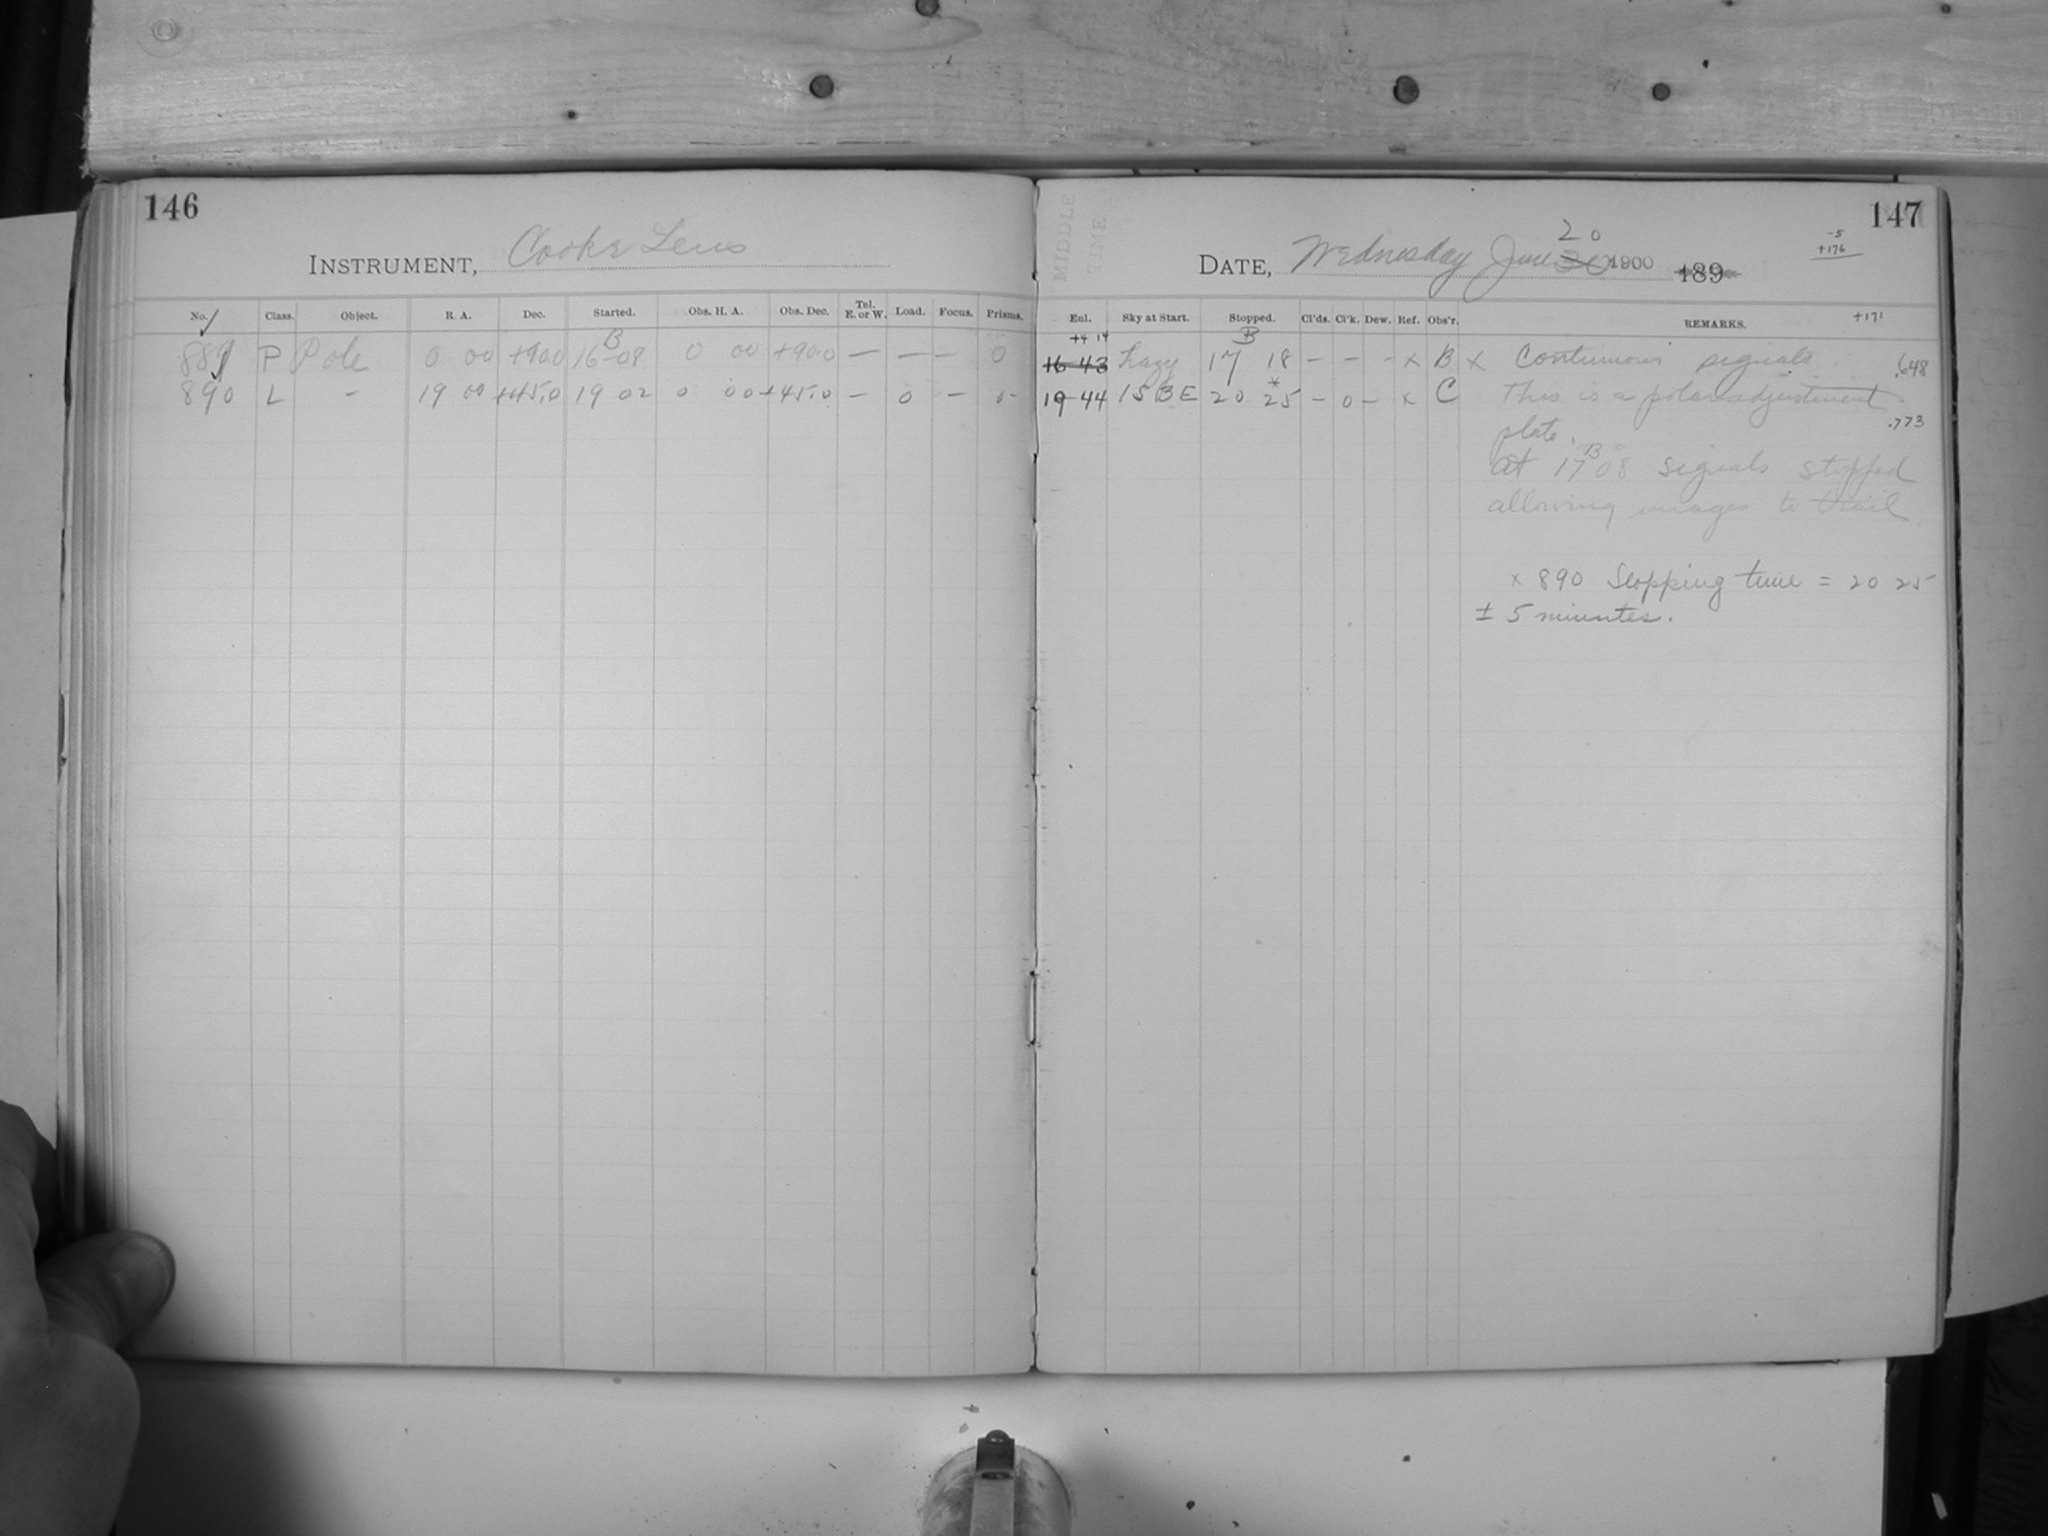 146
INSTRUMENT, Cooke Lens
No. Class. Object. R. A. Dec. Started. Obs. H. A. Obs. Dec. Tel. E. or W. Load. Focus. Prisms.
B
889 P Pole 0 00 +90.0 16-08 0 00 +90.0 — — — 0
890 L - 19 00 +45.0 19 02 0 00 +45.0 — 0 —
147
MIDDLE
TIME
20
DATE, Wednesday June 30 1900 189
-5
+176
Enl. Sky at Start. Stopped. Cl'ds. Cl'k. Dew. Ref. Obs'r. REMARKS. +171
+4 14 B
16 43 hazy 17 18 - - - x B x Continuous signals .648
19 44 1SBE 20 25* - 0 - x C This is a polar adjustment .773
plate.
B
at 17 08 signals stopped
allowing images to trail
x 890 Stopping time = 20 25
± 5 minutes.